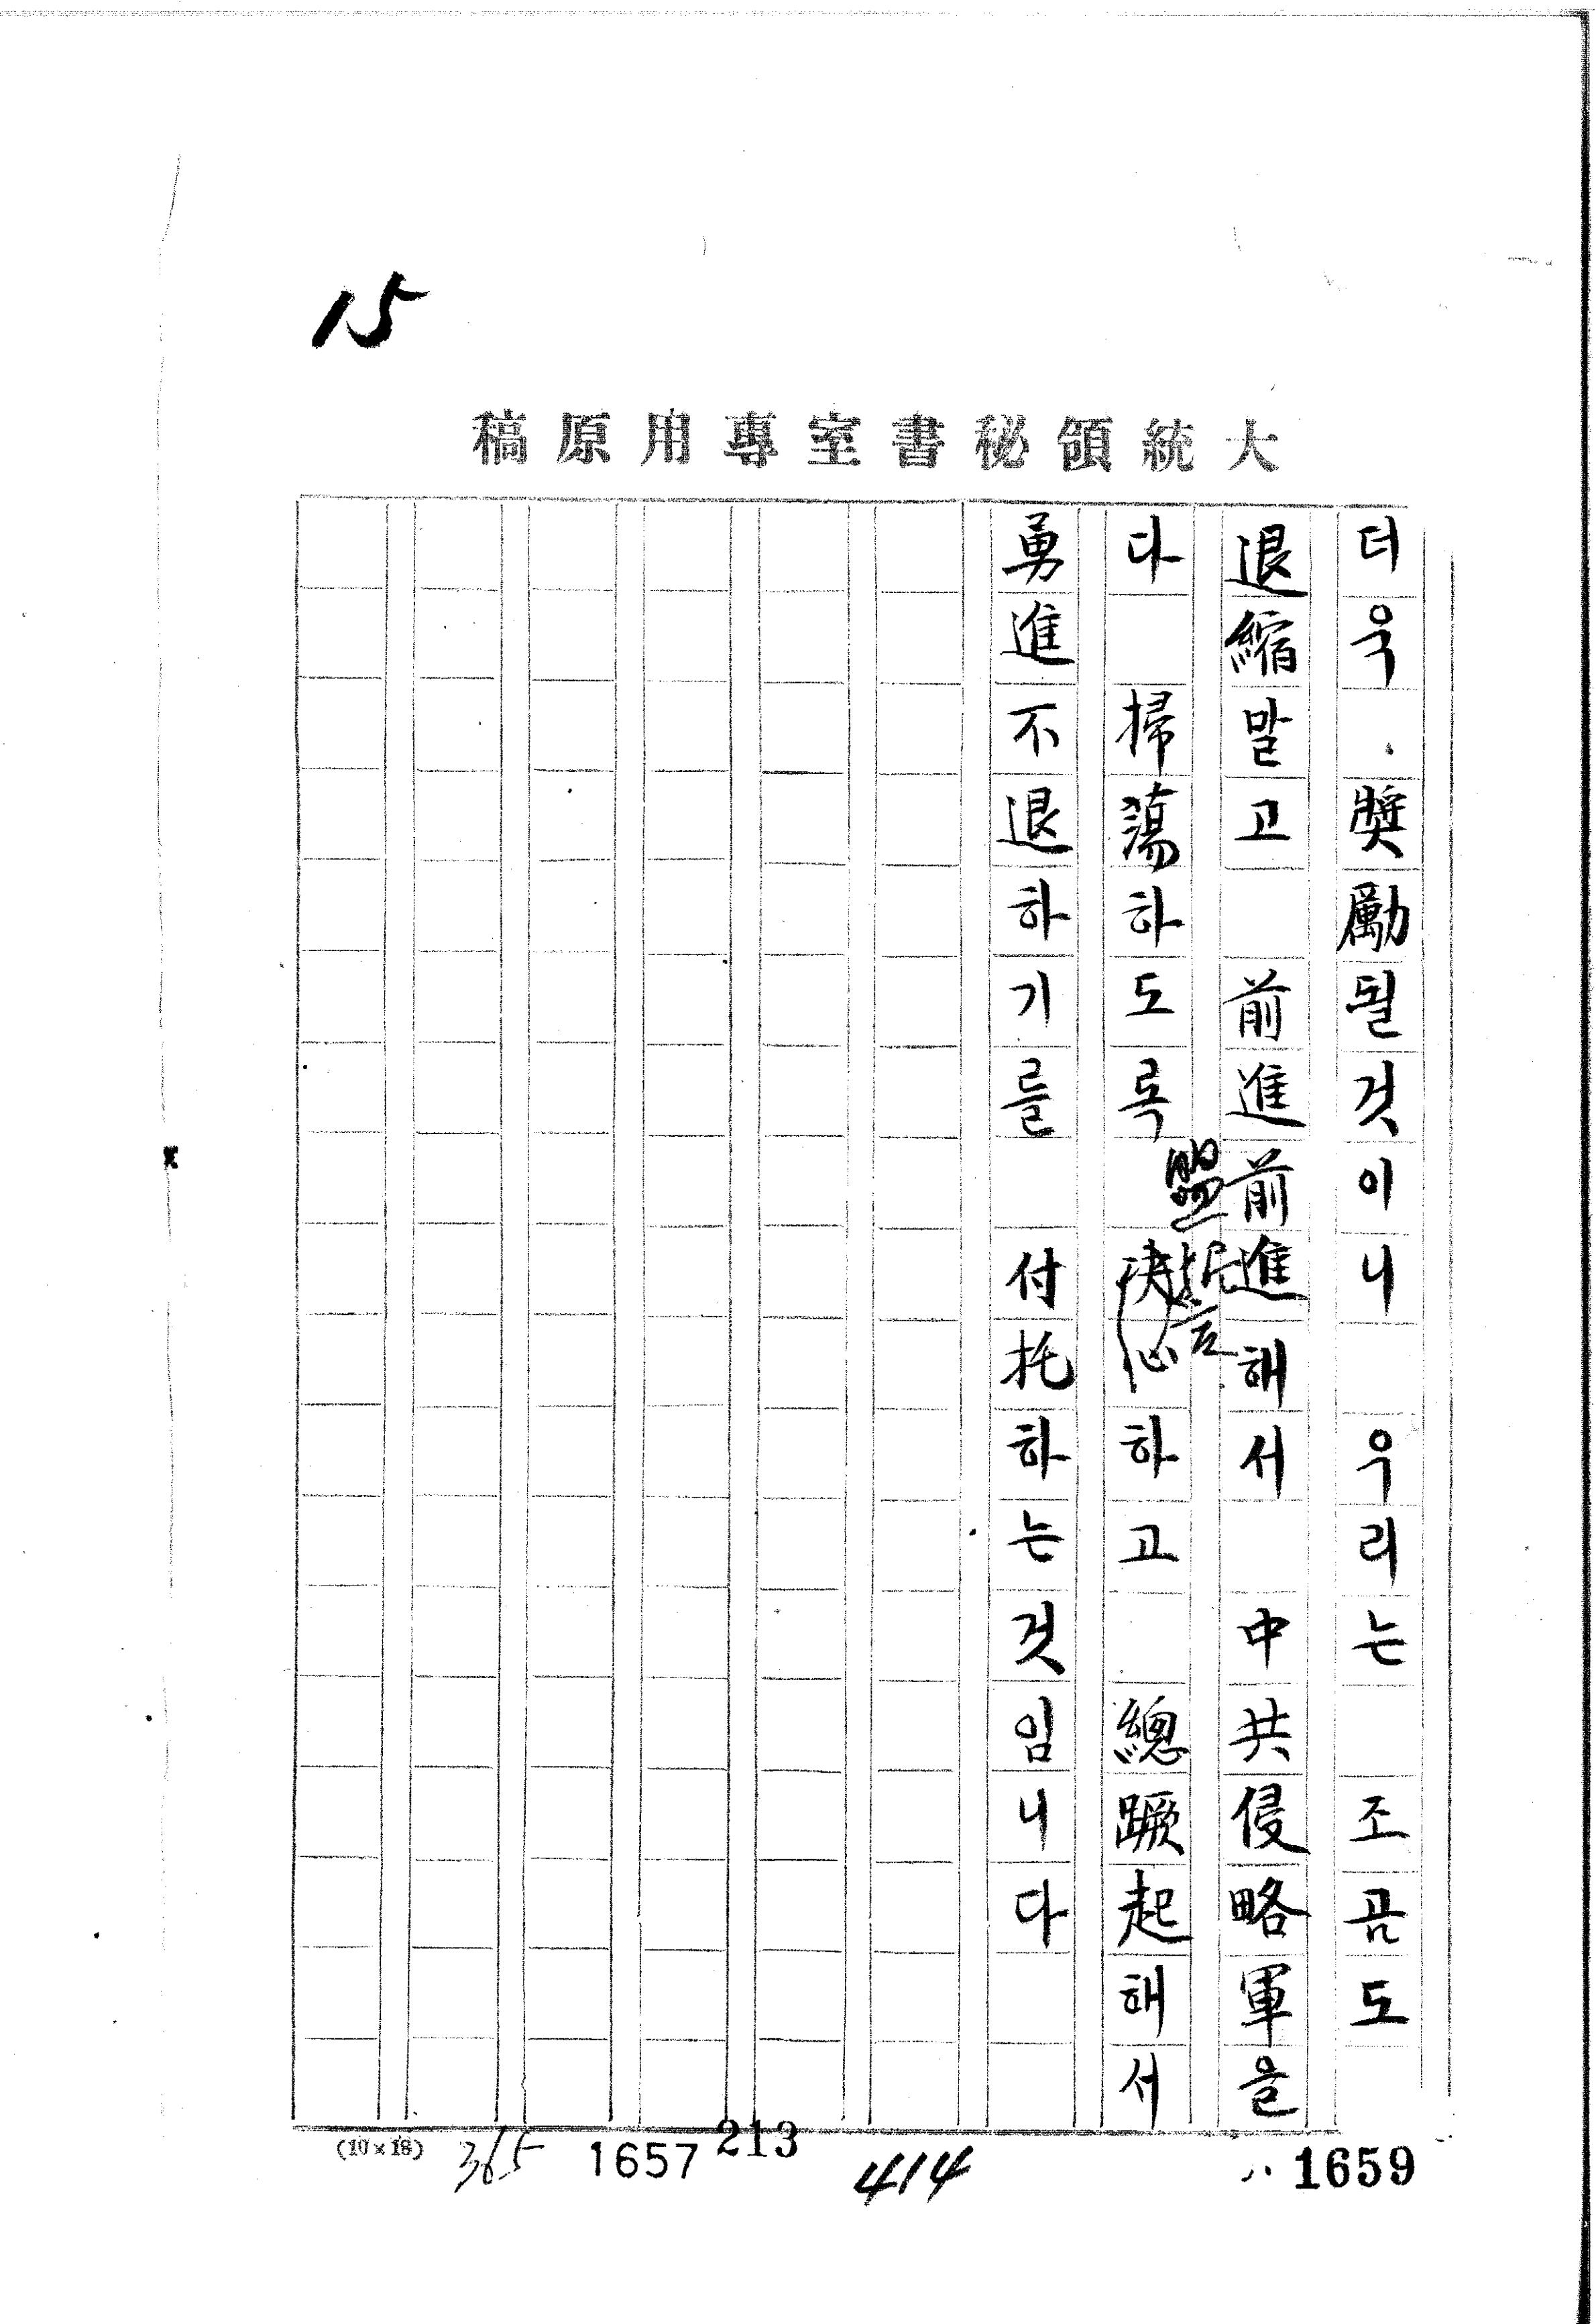 15
大統領秘書室專用原稿
더욱 奬勵될것이니 우리는 조곰도
退縮말고 前進前進해서 中共侵略軍을
다 掃蕩하도록 決心하고 總蹶起해서
盟誓
勇進不退하기를 付托하는것임니다
(10×18)
365
1657
213
414
1659